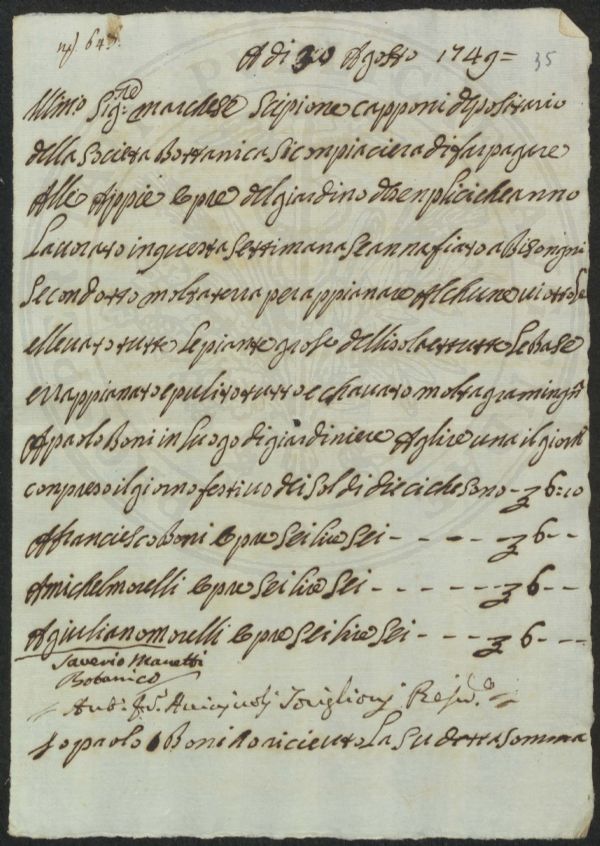 A di 30 Agosto 1749 = 35
Illmo Sigre marchese Scipione capponi depositario
della Societa Bottanica Si conpiaciera di far pagare
Alli Appie opre del giardino de senplici che anno
Lavorato in questa Settimana Se annafiato a Bisognio
Secondotto molta terra per appianare Alchune viottole
ellevato tutte le piante grose dell isola et tutte le Base
errappianato e pulito tutto e chavato molta gramingnia
A paolo Boni in luogo di giardiniere A lire una il giorno
conpreso il giorno festivo dei Soldi dieci che sono - 6:10
A franciesco Boni opre Sei lire Sei - - - - - 6 - -
A michel morelli opre Sei lire Sei - - - - - - 6 - -
A giuliano morelli opre Sei lire Sei - - - - 6 - - -
Saverio Manetti
Botanico
Io paolo Boni o riceuto La Sudetta Somma